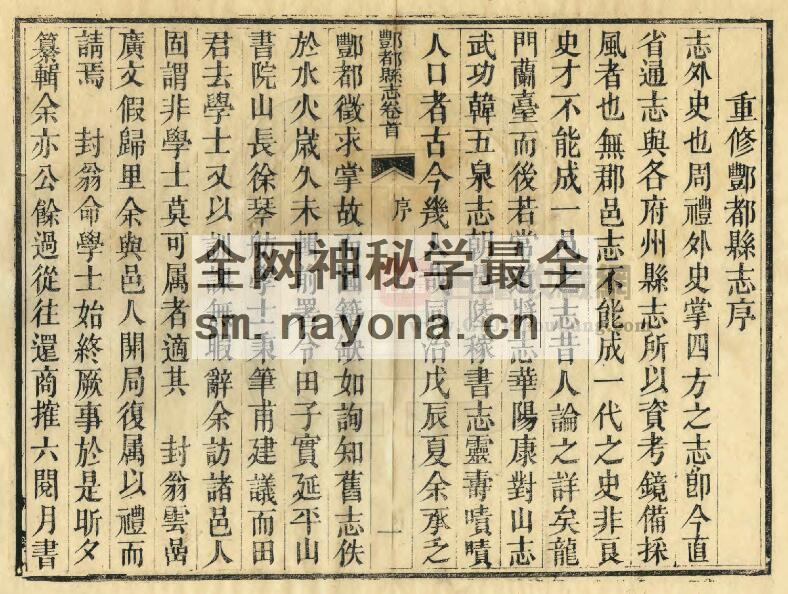 重修酆都縣志序
志外史也周禮外史掌四方之志卽今直
省通志與各府州縣志所以資考鏡備採
風者也無郡邑志不能成一代之史非良
史才不能成一邑之志昔人論之詳矣龍
門蘭臺而後若常將志華陽康對山志
武功韓五泉志朝邑陸稼書志靈壽嘖嘖
人口者古今幾同治戊辰夏余承乏
酆都縣志卷首
序
一
酆都徵求掌故籍獻如詢知舊志佚
於水火歲久未輯前署令田子實延平山
書院山長徐琴學士秉筆甫建議而田
君去學士又以訓士無暇辭余訪諸邑人
固謂非學士莫可属者適其 封翁雲嵒
廣文假歸里余與邑人開局復属以禮而
請焉 封翁命學士始終厥事於是昕夕
纂輯余亦公餘過從往還商搉六閱月書
全网神秘学最全
sm.nayona.cn